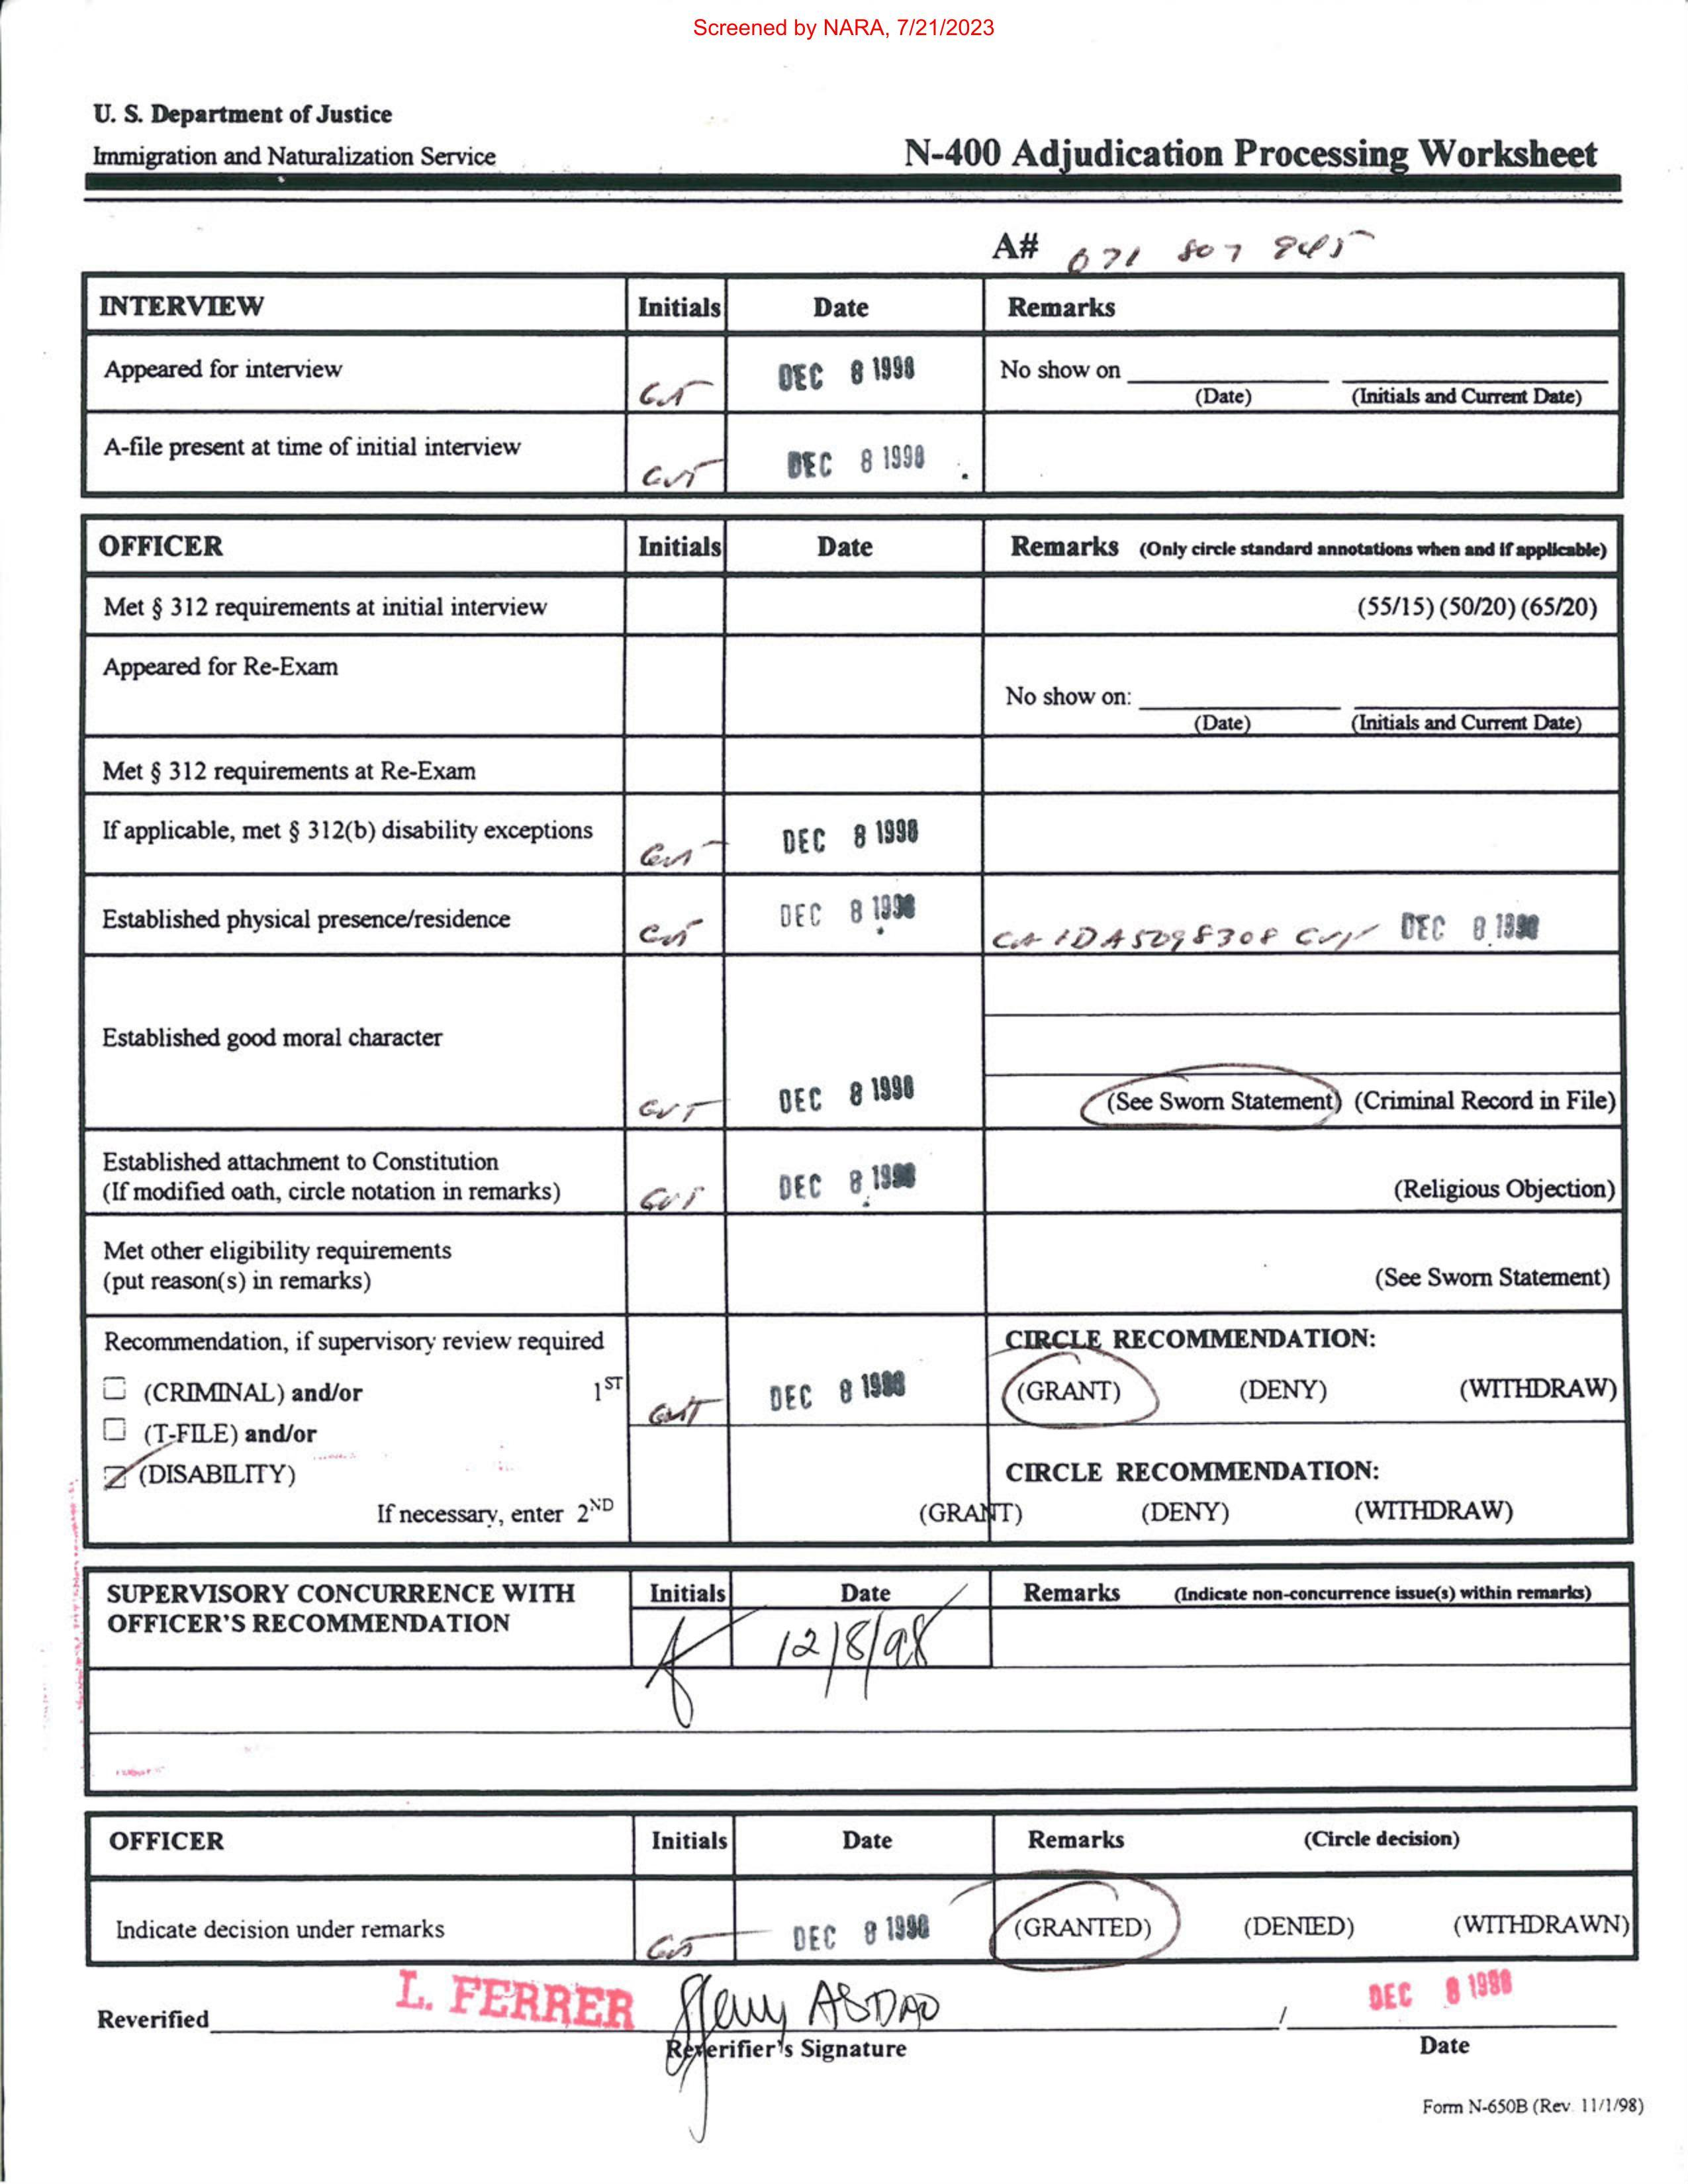 Screened by NARA, 7/21/2023
U. S. Department of Justice
Immigration and Naturalization Service
N-400 Adjudication Processing Worksheet
A# 071 807 845
INTERVIEW Initials Date Remarks
Appeared for interview DEC 8 1998 No show on
(Date) (Initials and Current Date)
A-file present at time of initial interview DEC 8 1998
OFFICER Initials Date Remarks (Only circle standard annotations when and if applicable)
Met § 312 requirements at initial interview (55/15) (50/20) (65/20)
Appeared for Re-Exam
No show on:
(Date) (Initials and Current Date)
Met § 312 requirements at Re-Exam
If applicable, met § 312(b) disability exceptions DEC 8 1998
Established physical presence/residence DEC 8 1998 CA ID A5098308 DEC 8 1998
Established good moral character
DEC 8 1998 (See Sworn Statement) (Criminal Record in File)
Established attachment to Constitution
(If modified oath, circle notation in remarks) DEC 8 1998 (Religious Objection)
Met other eligibility requirements
(put reason(s) in remarks) (See Sworn Statement)
Recommendation, if supervisory review required CIRCLE RECOMMENDATION:
(CRIMINAL) and/or 1ST DEC 8 1998 (GRANT) (DENY) (WITHDRAW)
(T-FILE) and/or
(DISABILITY) CIRCLE RECOMMENDATION:
If necessary, enter 2ND (GRANT) (DENY) (WITHDRAW)
SUPERVISORY CONCURRENCE WITH Initials Date Remarks (Indicate non-concurrence issue(s) within remarks)
OFFICER'S RECOMMENDATION 12/8/98
OFFICER Initials Date Remarks (Circle decision)
Indicate decision under remarks DEC 8 1998 (GRANTED) (DENIED) (WITHDRAWN)
Reverified L. FERRER ABDAO / DEC 8 1998
Reverifier's Signature Date
Form N-650B (Rev. 11/1/98)